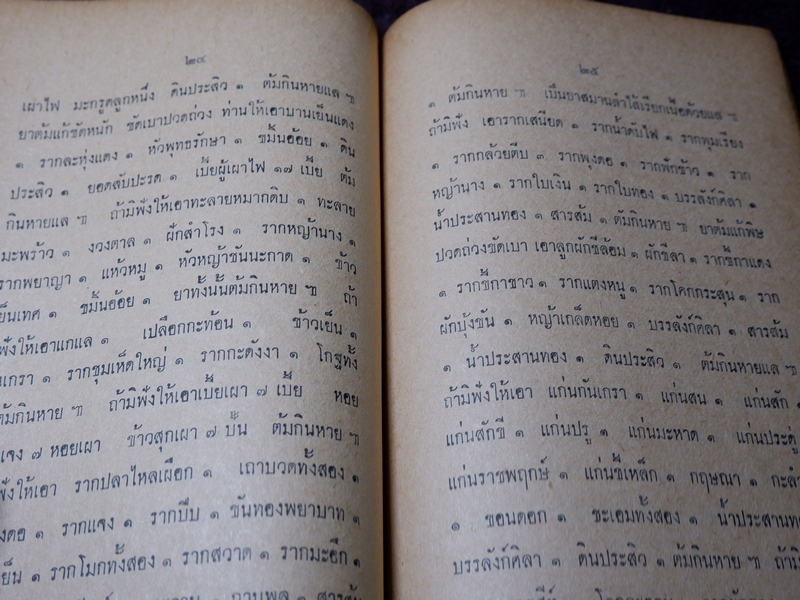 ๒๔
เผาไฟ มะกรูดลูกหนึ่ง ดินประสิว ๑ ต้มกินหายแล ๚
ยาต้มแก้ขัดหนัก ขัดเบาปวดถ่วง ท่านให้เอาบานเย็นแดง
๑ รากละหุ่งแดง ๑ หัวพุทธรักษา ๑ ขมิ้นอ้อย ๑ ดิน
ประสิว ๑ ยอดสับปะรด ๑ เบี้ยผู้เผาไฟ ๑๗ เบี้ย ต้ม
กินหายแล ๚ ถ้ามิฟังให้เอาทะลายหมากดิบ ๑ ทะลาย
มะพร้าว ๑ งวงตาล ๑ ฝักสำโรง ๑ รากหญ้านาง ๑
รากพยาญา ๑ แห้วหมู ๑ หัวหญ้าชันนะกาด ๑ ข้าว
เย็นเทศ ๑ ขมิ้นอ้อย ๑ ยาทั้งนั้นต้มกินหาย ๚ ถ้า
ฟังให้เอาแกแล ๑ เปลือกกะท้อน ๑ ข้าวเย็น ๑
เกรา ๑ รากชุมเห็ดใหญ่ ๑ รากกะดังงา ๑ โกฐทั้ง
ต้มกินหาย ๚ ถ้ามิฟังให้เอาเบี้ยเผา ๗ เบี้ย หอย
แจง ๗ หอยเผา ข้าวสุกเผา ๗ ปั้น ต้มกินหาย ๚
ฟังให้เอา รากปลาไหลเผือก ๑ เถาบวดทั้งสอง ๑
งดอ ๑ รากแจง ๑ รากบีบ ๑ ขันทองพยาบาท ๑
เย็น ๑ รากโมกทั้งสอง ๑ รากสวาด ๑ รากมะอึก ๑
๒๕
๑ ต้มกินหาย ๚ เป็นยาสมานลำไส้เรียกเนื้อด้วยแล ๚
ถ้ามิฟัง เอารากเสนียด ๑ รากน้ำดับไฟ ๑ รากพุมเรียง
๑ รากกล้วยตีบ ๓ รากพุงดอ ๑ รากฟักข้าว ๑ ราก
หญ้านาง ๑ รากใบเงิน ๑ รากใบทอง ๑ บรรลังก์ศิลา ๑
น้ำประสานทอง ๑ สารส้ม ๑ ต้มกินหาย ๚ ยาต้มแก้พิษ
ปวดถ่วงขัดเบา เอาลูกผักชีล้อม ๑ ผักชีลา ๑ รากขี้กาแดง
๑ รากขี้กาขาว ๑ รากแตงหนู ๑ รากโคกกระสุน ๑ ราก
ผักบุ้งขัน ๑ หญ้าเกล็ดหอย ๑ บรรลังก์ศิลา ๑ สารส้ม
๑ น้ำประสานทอง ๑ ดินประสิว ๑ ต้มกินหายแล ๚
ถ้ามิฟังให้เอา แก่นกันเกรา ๑ แก่นสน ๑ แก่นสัก ๑
แก่นสักขี ๑ แก่นปรู ๑ แก่นมะหาด ๑ แก่นประดู่
แก่นราชพฤกษ์ ๑ แก่นขี้เหล็ก ๑ กฤษณา ๑ กะลำ
๑ ขอนดอก ๑ ชะเอมทั้งสอง ๑ น้ำประสานท
บรรลังก์ศิลา ๑ ดินประสิว ๑ ต้มกินหาย ๚ ถ้ามิ